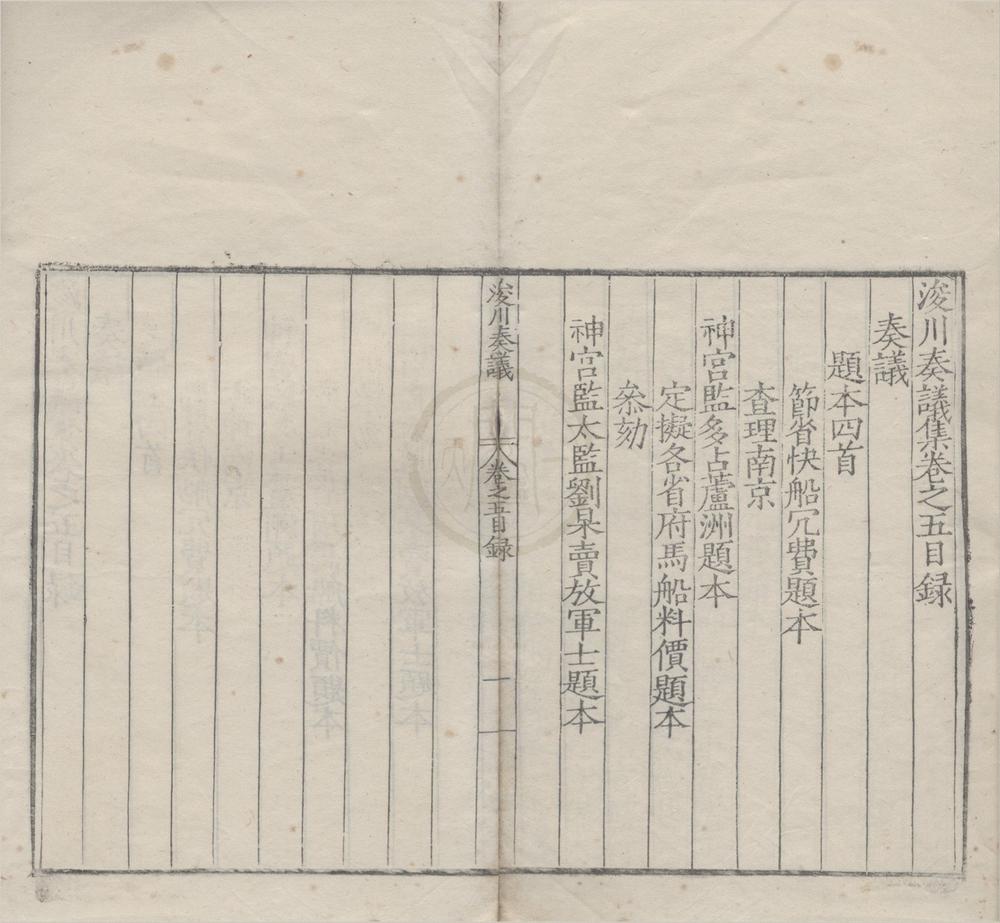 浚川奏議集卷之五目録
奏議
題本四首
節省快船冗費題本
查理南京
神宫監多占蘆洲題本
定擬各省府馬船料價題本
叅劾
神宫監太監劉杲賣放軍士題本
浚川奏議
卷之五目録
一